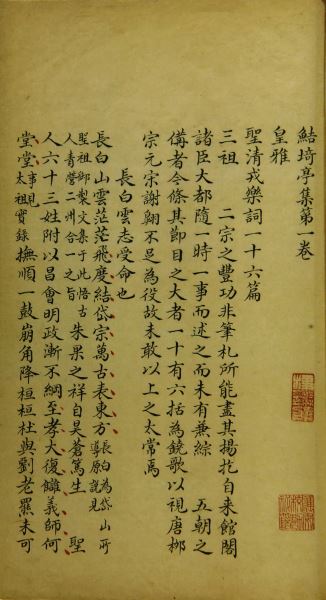 鮚埼亭集第一卷
皇雅
聖清戎樂詞一十六篇
三祖　二宗之豐功非筆札所能盡其揚扢自来館閣
諸臣大都隨一時一事而述之而未有兼綜　五朝之
備者今條其節目之大者一十有六括為鐃歌以視唐柳
宗元宋謝翱不足為役故未敢以上之太常焉
長白雲志受命也
長白山雲茫茫飛度結岱宗萬古表東方長白為岱山所導原說見
聖祖御製文集于此悟古人青營二州合一之旨朱果之祥自昊蒼篤生　聖
人六十三姓附以昌會明政漸不綱至孝大復讎義師何
堂堂事見太祖實錄撫順一鼓崩角降桓桓杜與劉老羆未可